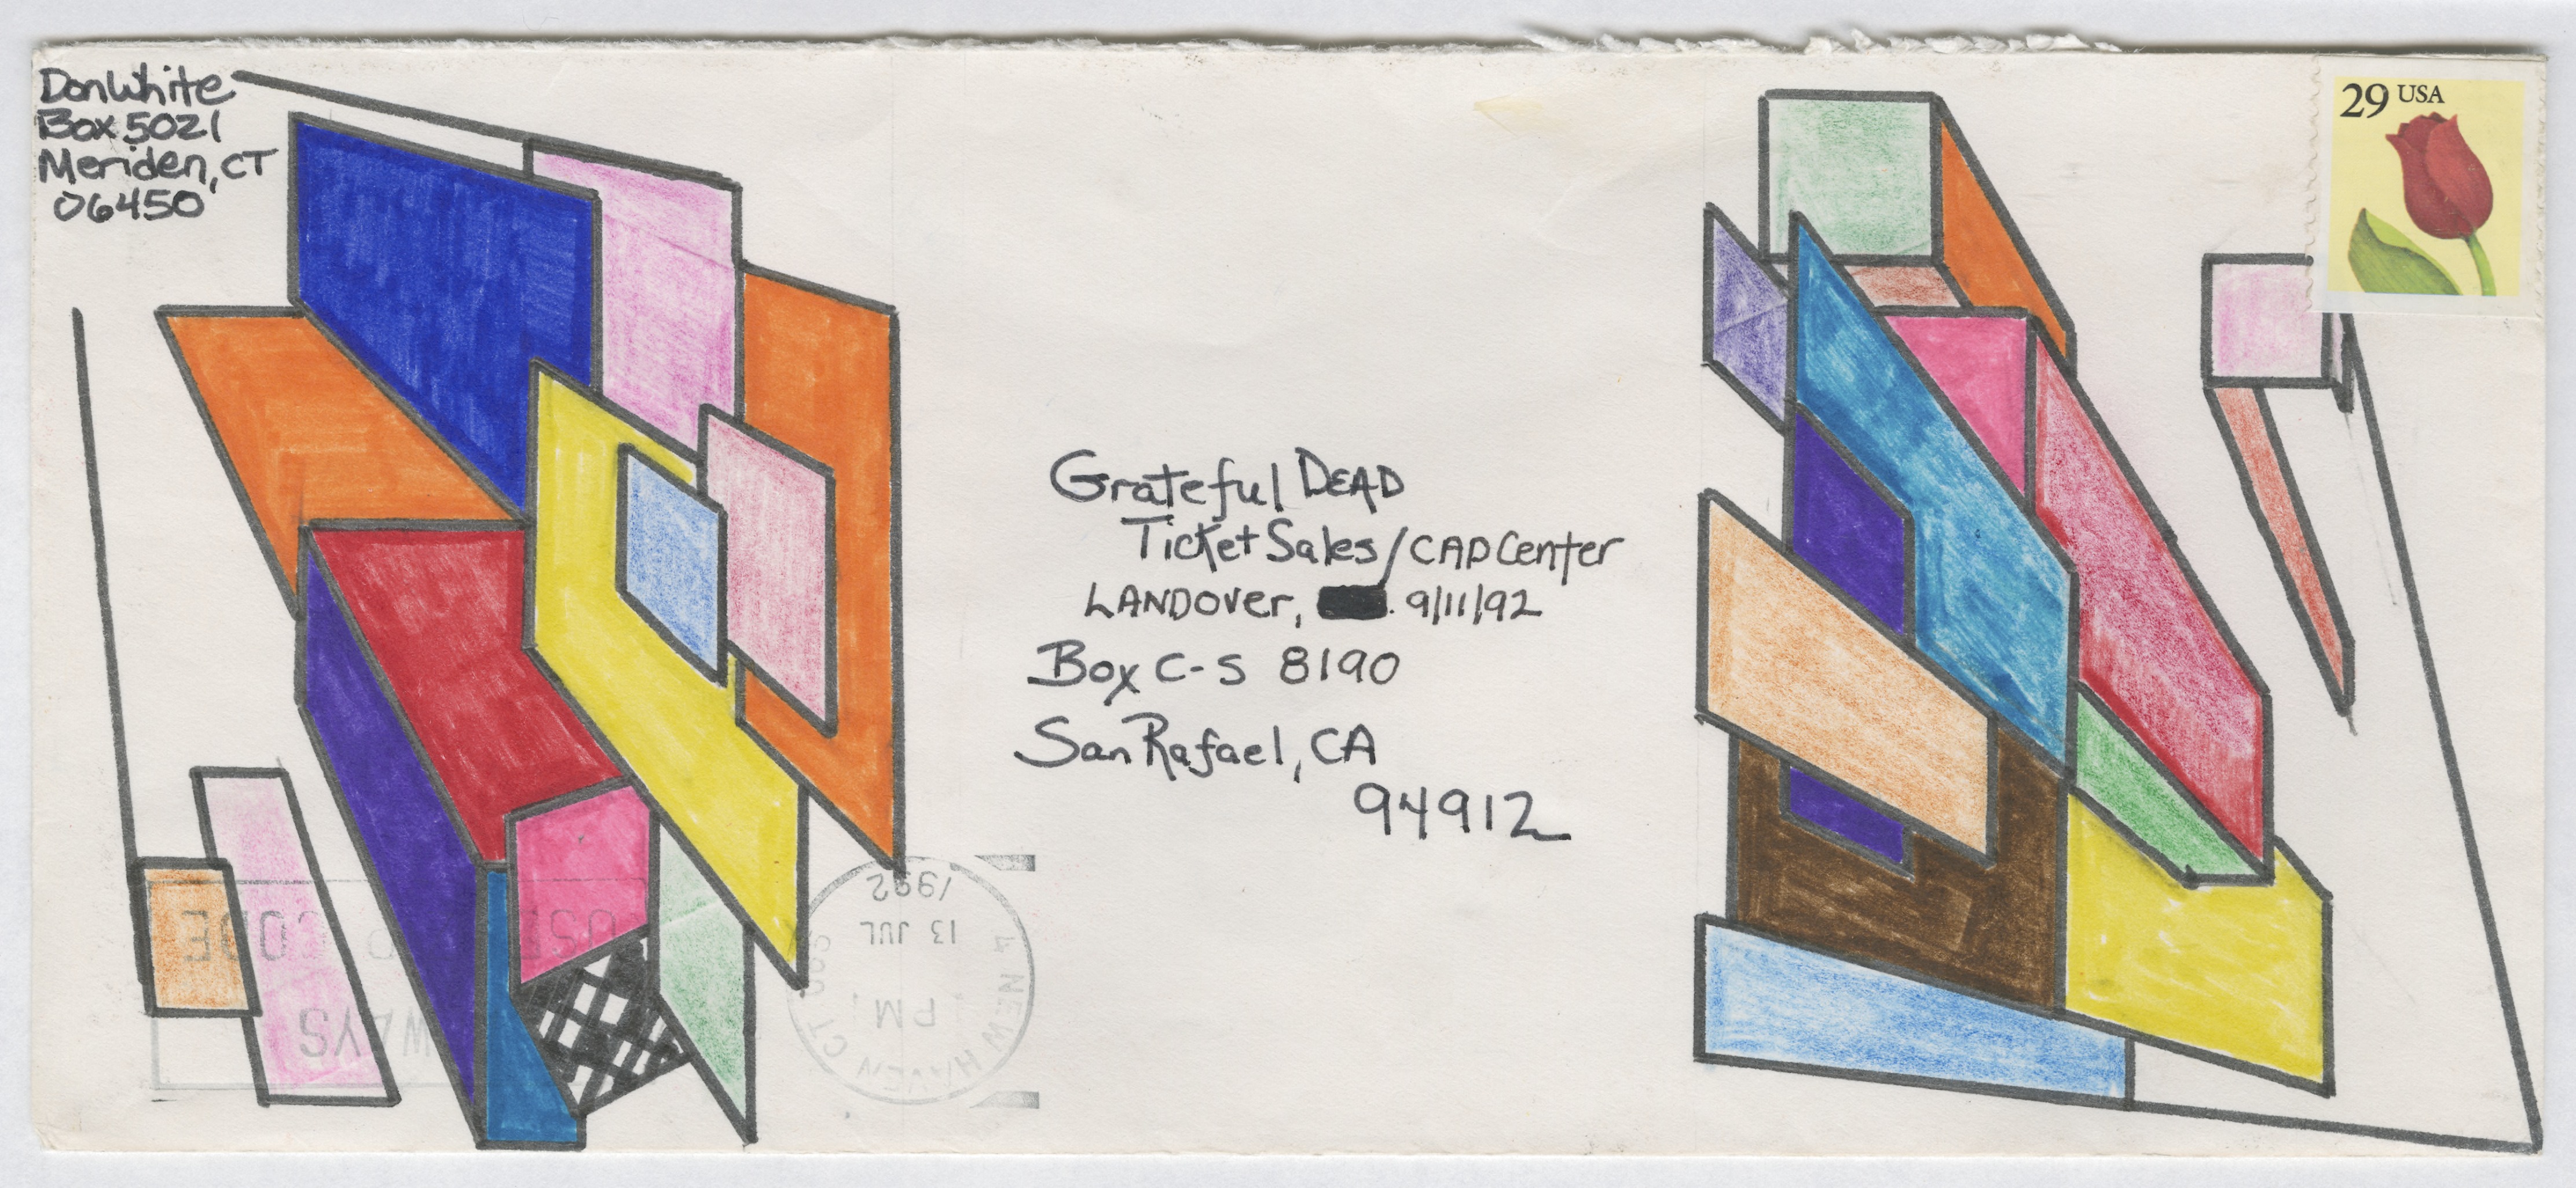 Don White
Box 5021
Meriden, CT
06450
29 USA
Grateful DEAD
Ticket Sales/CAPCenter
LANDOver, 9/11/92
Box C-S 8190
San Rafael, CA
94912
NEW HAVEN CT
PM
13 JUL
1992